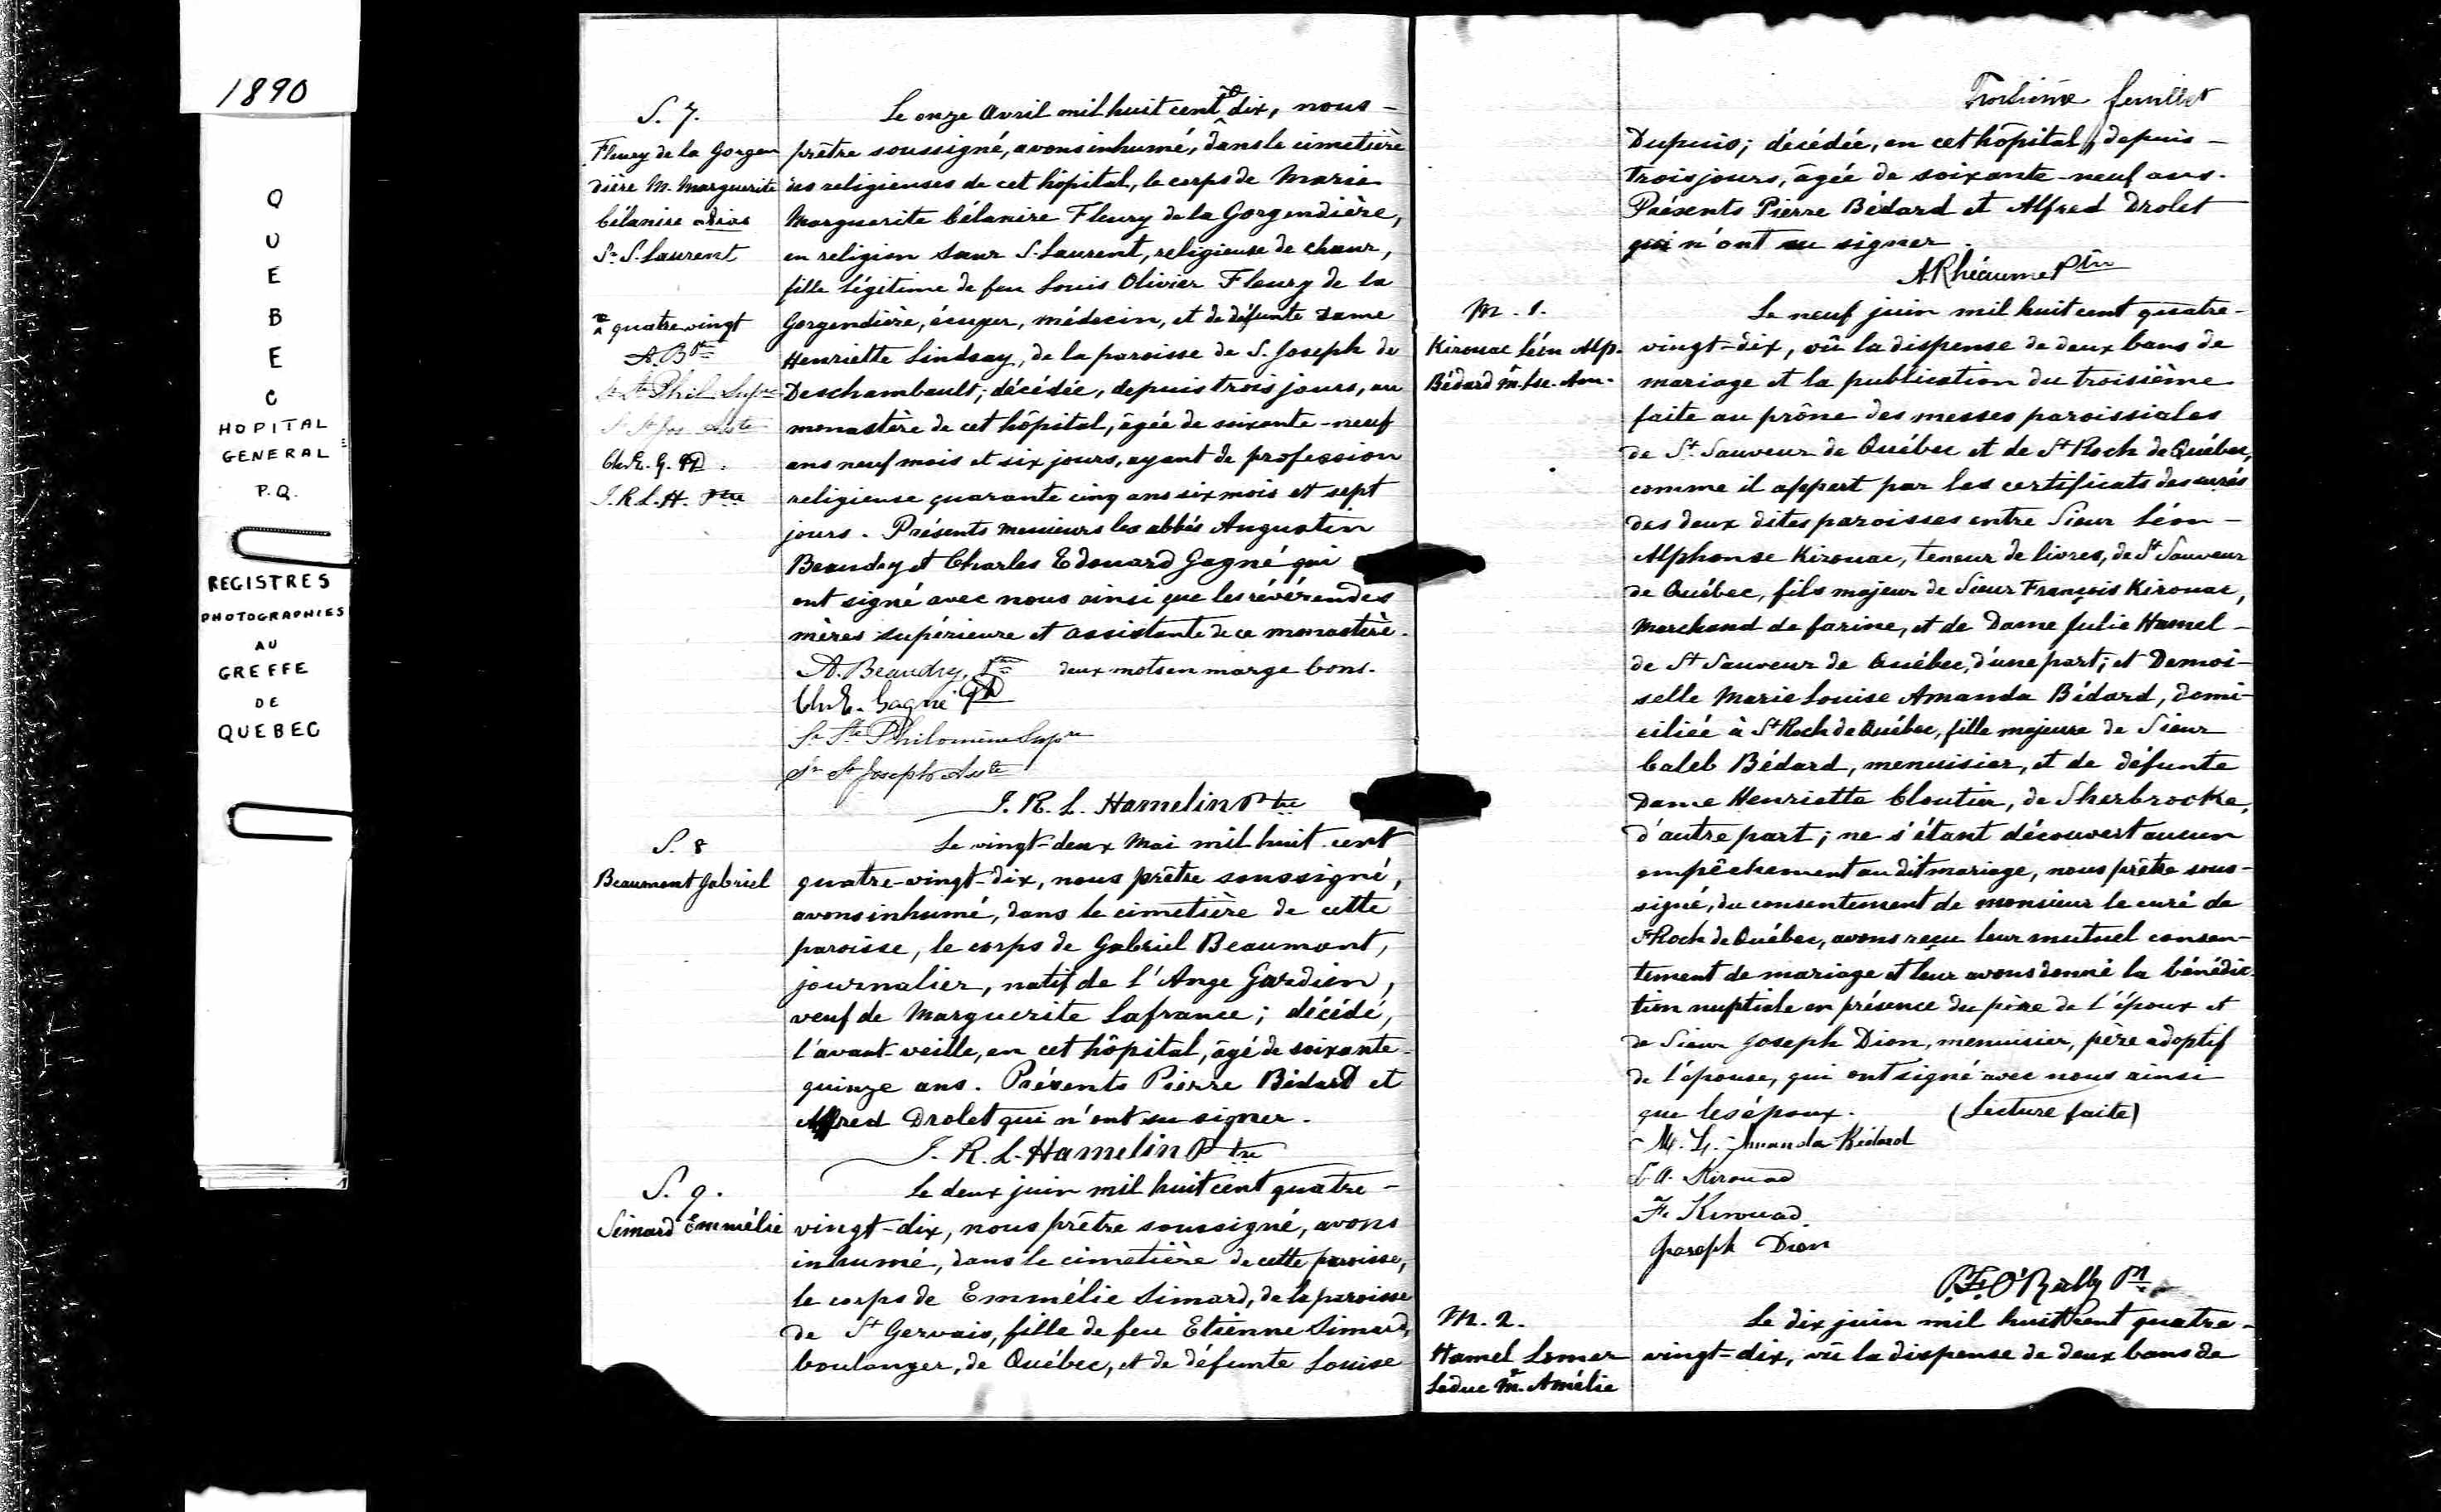 1890
QUEBEC
HOPITAL
GENERAL
P.Q.
REGISTRES
PHOTOGRAPHIES
AU
GREFFE
DE
QUEBEC
S. 7.
Fleury de la Gorgen
dière M. Marguerite
Célanire
Sr S. Laurent
quatre vingt
A. B Ptre
Sr Ste Phil Supre
Sr St Jos Aste
Ch. E. G. Ptr
J. R. L. H. Ptre
Le onze Avril mil huit cent dix, nous -
prêtre soussigné, avons inhumé, dans le cimetière
des religieuses de cet hôpital, le corps de Marie
Marguerite Célanire Fleury de la Gorgendière,
en religion Sœur S. Laurent, religieuse de chœur,
fille légitime de feu Louis Olivier Fleury de la
Gorgendière, écuyer, médecin, et de défunte Dame
Henriette Lindsay, de la paroisse de S. Joseph de
Deschambault; décédée, depuis trois jours, au
monastère de cet hôpital, âgée de soixante-neuf
ans neuf mois et six jours, ayant de profession
religieuse quarante cinq ans six mois et sept
jours. Présents messieurs les abbés Augustin
Beaudry et Charles Edouard Gagné qui
ont signé avec nous ainsi que les révérendes
mères supérieure et assistante de ce monastère.
A. Beaudry, Ptre deux mots en marge bons.
Ch. E. Gagné Ptr
Sr Ste Philomène Supre
Sr St Joseph Aste
J. R. L. Hamelin Ptre
S. 8
Beaumont Gabriel
Le vingt-deux Mai mil huit cent
quatre-vingt-dix, nous prêtre soussigné,
avons inhumé, dans le cimetière de cette
paroisse, le corps de Gabriel Beaumont,
journalier, natif de l'Ange Gardien,
veuf de Marguerite Lafrance; décédé,
l'avant-veille, en cet hôpital, âgé de soixante-
quinze ans. Présents Pierre Bédard et
Alfred Drolet qui n'ont su signer.
J. R. L. Hamelin Ptre
S. 9.
Simard Emmélie
Le deux juin mil huit cent quatre-
vingt-dix, nous prêtre soussigné, avons
inhumé, dans le cimetière de cette paroisse,
le corps de Emmélie Simard, de la paroisse
de St Gervais, fille de feu Etienne Simard,
boulanger, de Québec, et de défunte Louise
Troisième feuillet
Dupuis; décédée, en cet hôpital, depuis -
trois jours, âgée de soixante-neuf ans.
Présents Pierre Bédard et Alfred Drolet
qui n'ont su signer.
A. Rhéaume Ptre
M. 1.
Kirouac Léon Alp.
Bédard M. Lse. Am.
Le neuf juin mil huit cent quatre-
vingt-dix, vû la dispense de deux bans de
mariage et la publication du troisième
faite au prône des messes paroissiales
de St. Sauveur de Québec et de St Roch de Québec,
comme il appert par les certificats des curés
des deux dites paroisses entre Sieur Léon -
Alphonse Kirouac, teneur de livres, de St Sauveur
de Québec, fils majeur de Sieur François Kirouac,
Marchand de farine, et de Dame Julie Hamel -
de St Sauveur de Québec, d'une part; et Demoi-
selle Marie Louise Amanda Bédard, domi-
ciliée à St Roch de Québec, fille majeure de Sieur
Caleb Bédard, menuisier, et de défunte
Dame Henriette Cloutier, de Sherbrooke,
d'autre part; ne s'étant découvert aucun
empêchement au dit mariage, nous prêtre sous-
signé, du consentement de monsieur le curé de
St Roch de Québec, avons reçu leur mutuel consen-
tement de mariage et leur avons donné la bénédic-
tion nuptiale en présence du père de l'époux et
de Sieur Joseph Dion, menuisier, père adoptif
de l'épouse, qui ont signé avec nous ainsi
que les époux. (Lecture faite)
M. L. Amanda Bédard
L. A. Kirouac
F. Kirouac
Joseph Dion
P. F. O'Reilly Ptr
M. 2.
Hamel Lomer
Leduc M. Amélie
Le dix juin mil huit cent quatre-
vingt-dix, vû la dispense de deux bans de